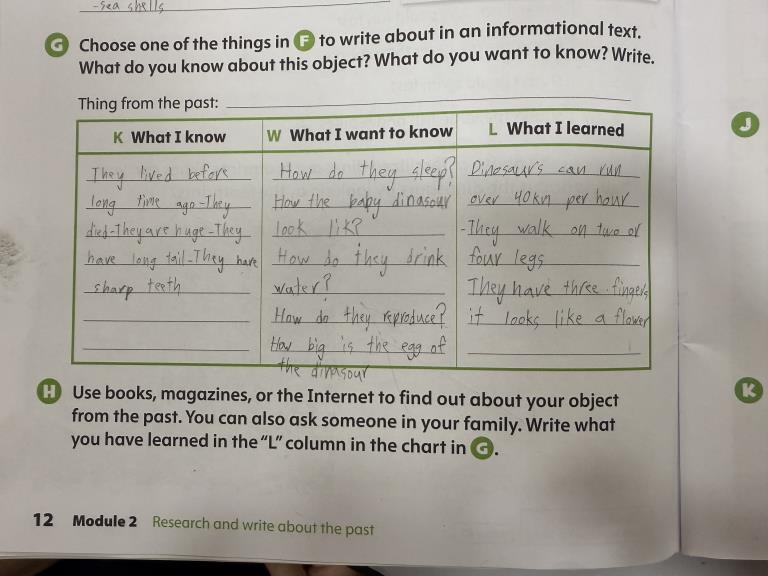 -Sea shells
G Choose one of the things in F to write about in an informational text.
What do you know about this object? What do you want to know? Write.
Thing from the past:
K What I know
W What I want to know
L What I learned
They lived before
long time ago-They
died-They are huge-They
have long tail-They have
sharp teeth
How do they sleep?
How the baby dinasour
look lik?
How do they drink
water?
How do they reproduce?
How big is the egg of
the dinasour
Dinosaurs can run
over 40km per hour
-They walk on two or
four legs
They have three fingers
it looks like a flower
H Use books, magazines, or the Internet to find out about your object
from the past. You can also ask someone in your family. Write what
you have learned in the "L" column in the chart in G.
12 Module 2 Research and write about the past
J
K